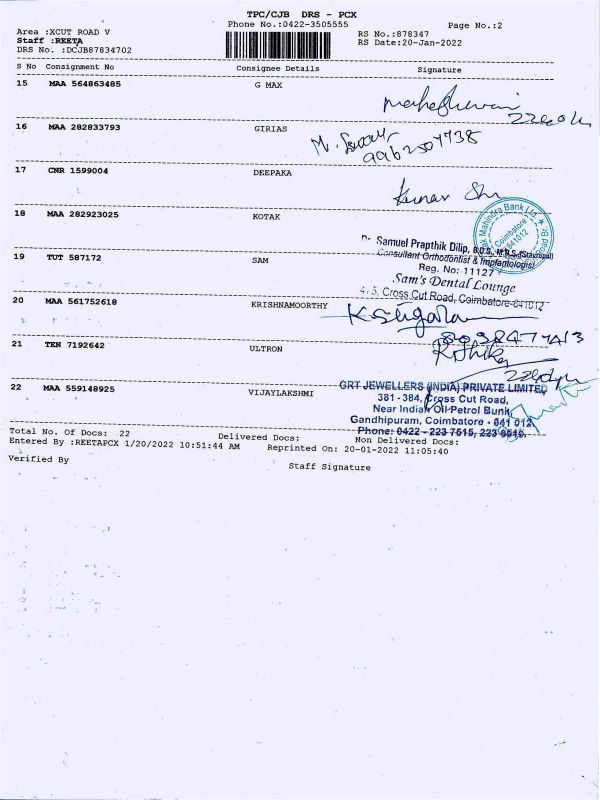 TPC/CJB DRS - PCX
Phone No.:0422-3505555
Page No.:2
Area :XCUT ROAD V
Staff :REETA
DRS No. :DCJB87834702
RS No.:878347
RS Date:20-Jan-2022
S No Consignment No Consignee Details Signature
15 MAA 564863485 G MAX
16 MAA 282833793 GIRIAS
17 CNR 1599004 DEEPAKA
Kumar
18 MAA 282923025 KOTAK
Mahindra Bank Ltd
Coimbatore
641012
Dr. Samuel Prapthik Dilip, B.D.S., M.D.S.
Consultant Orthodontist & Implantologist
Reg. No: 11127
19 TUT 587172 SAM
Sam's Dental Lounge
Cross Cut Road, Coimbatore-641012
20 MAA 561752618 KRISHNAMOORTHY
21 TEN 7192642 ULTRON
22 MAA 559148925 VIJAYLAKSHMI
GRT JEWELLERS (INDIA) PRIVATE LIMITED
381 - 384, Cross Cut Road,
Near Indian Oil Petrol Bunk,
Gandhipuram, Coimbatore - 641 012.
Phone: 0422 - 223 7515, 223 6515.
Total No. Of Docs: 22 Delivered Docs: Non Delivered Docs:
Entered By :REETAPCX 1/20/2022 10:51:44 AM Reprinted On: 20-01-2022 11:05:40
Verified By
Staff Signature